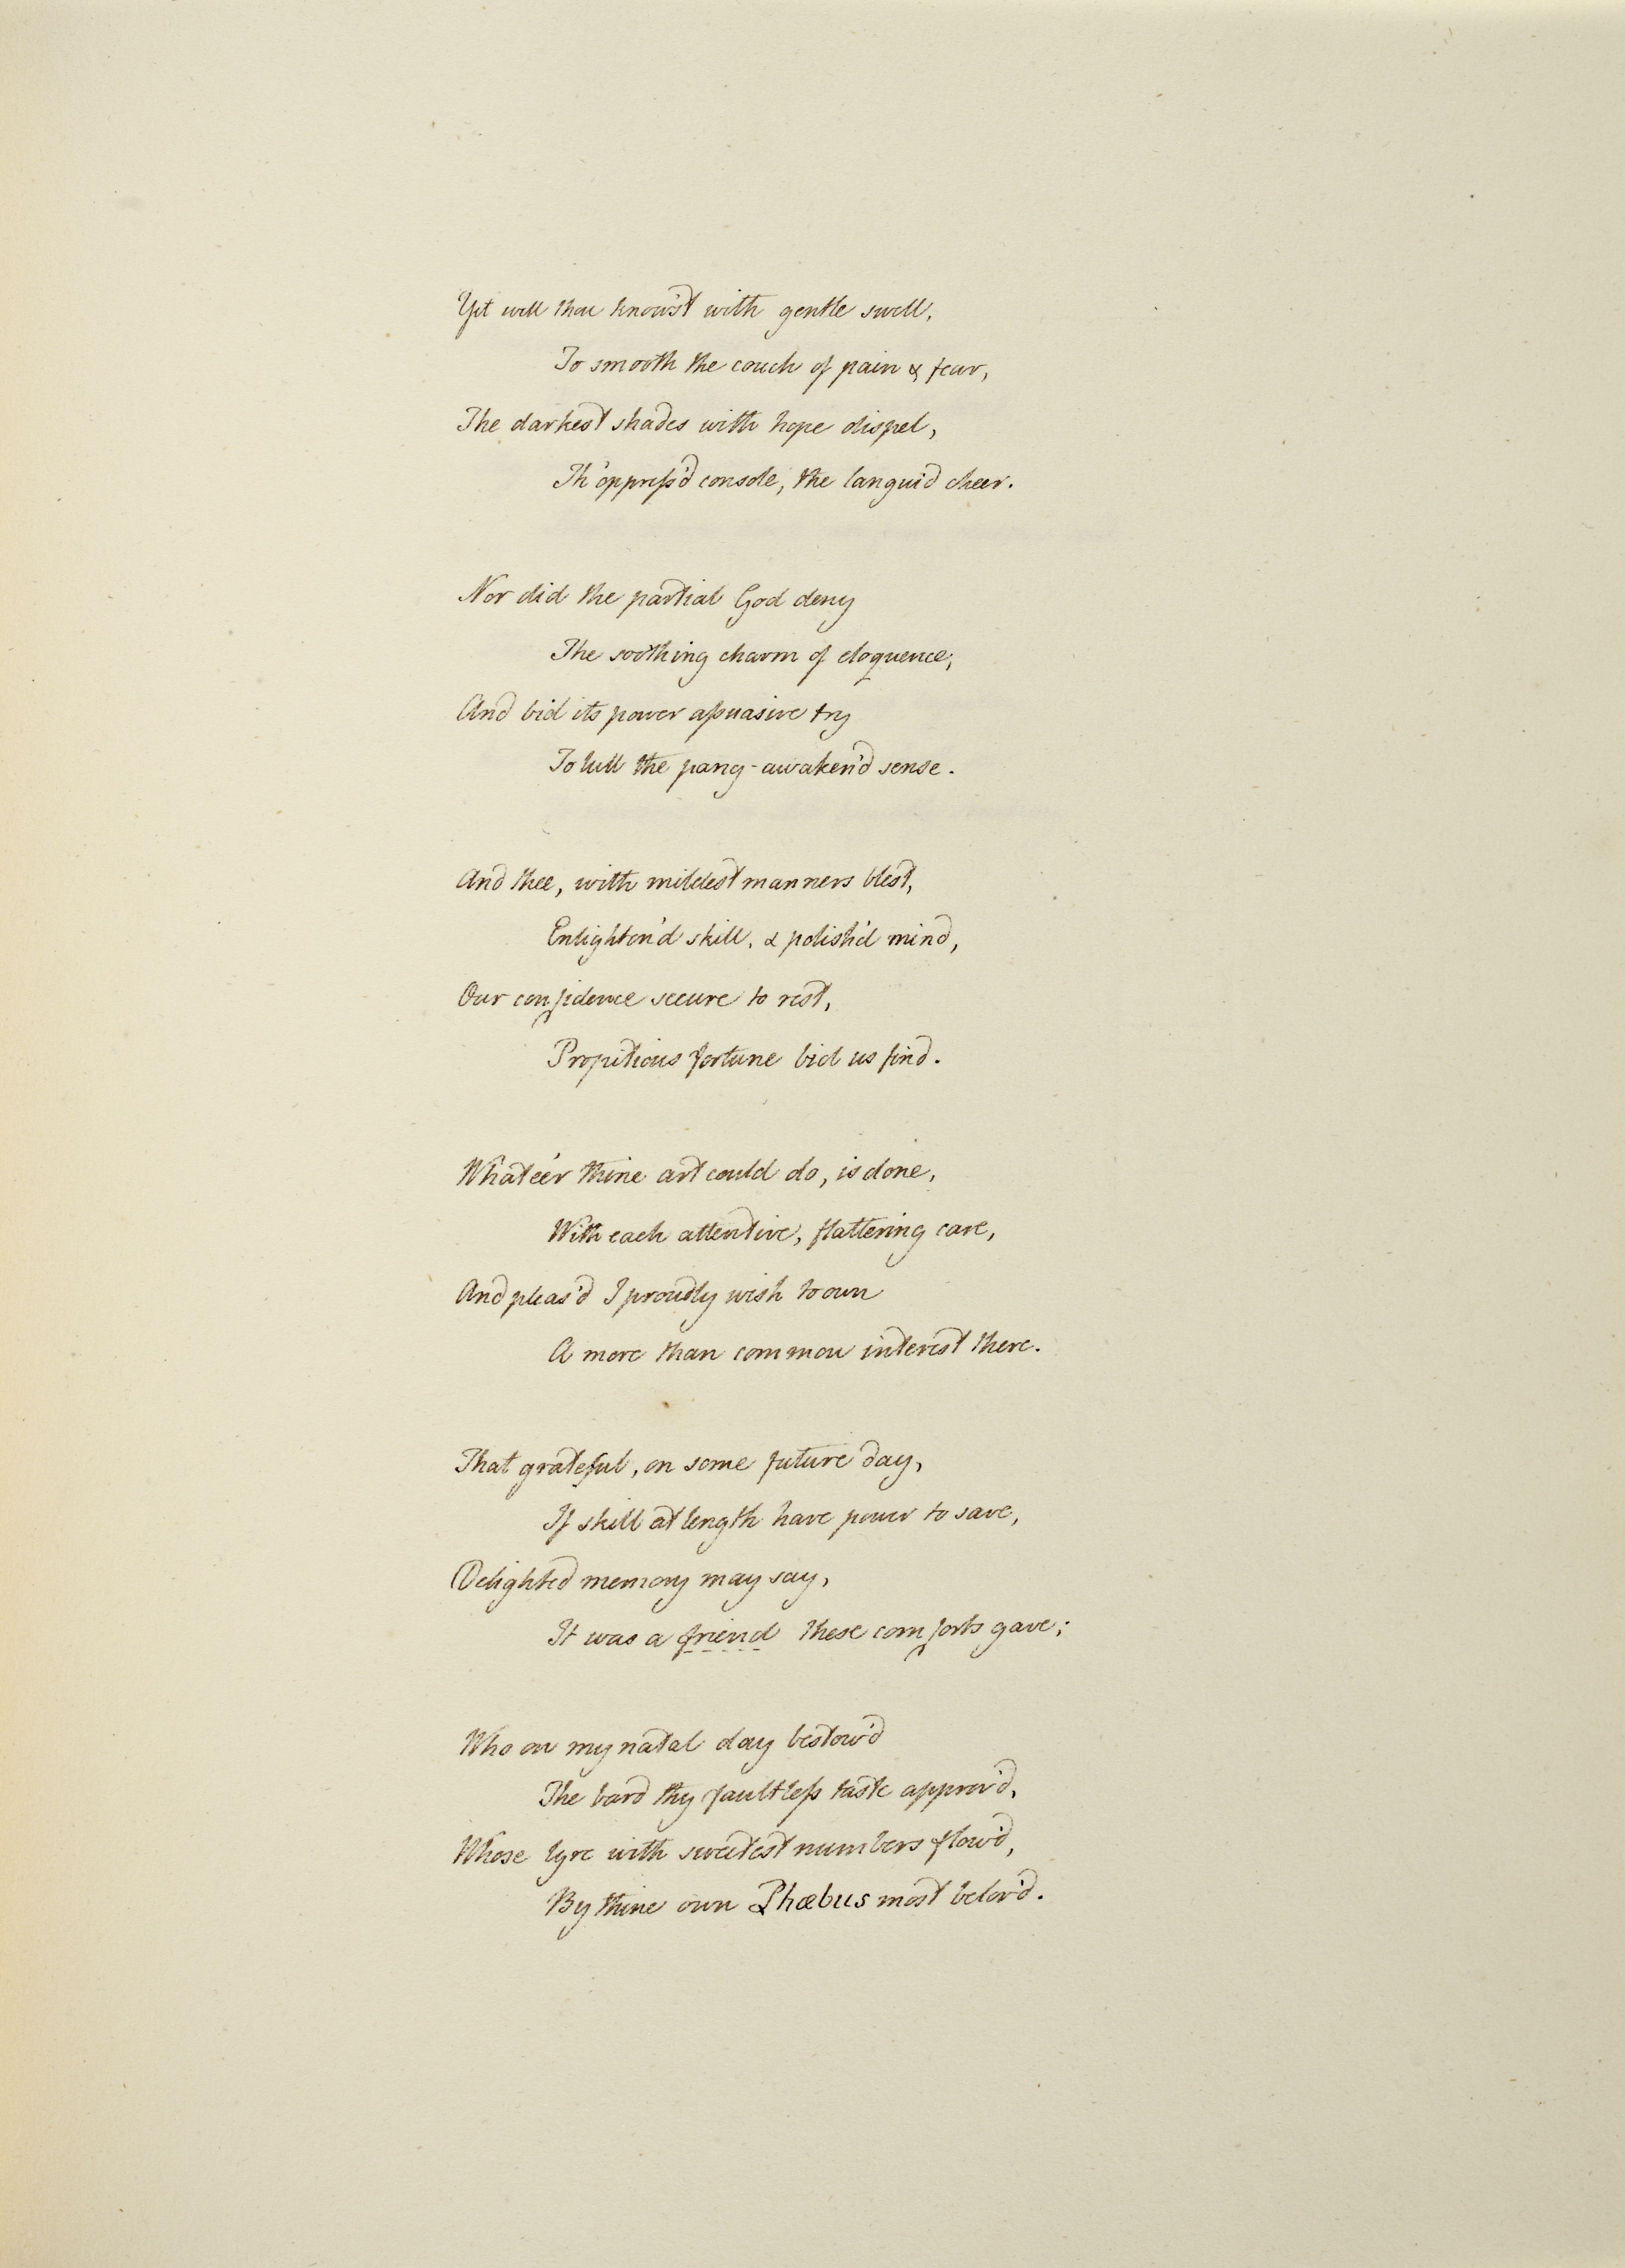 Yet well thou know'st with gentle swell,
To smooth the couch of pain & fear,
The darkest shades with hope dispel,
Th'oppreſs'd console, the languid cheer.
Nor did the partial God deny
The soothing charm of eloquence,
And bid its power aſsuasive try
To lull the pang-awaken'd sense.
And thee, with mildest manners blest,
Enlighten'd skill, & polish'd mind,
Our confidence secure to rest,
Propitious fortune bid us find.
Whate'er thine art could do, is done,
With each attentive, flattering care,
And pleas'd I proudly wish to own
A more than common interest there.
That grateful, on some future day,
If skill at length have power to save,
Delighted memory may say,
It was a friend these comforts gave;
Who on my natal day bestow'd
The bard thy faultleſs taste approv'd,
Whose lyre with sweetest numbers flow'd,
By thine own Phœbus most belov'd.